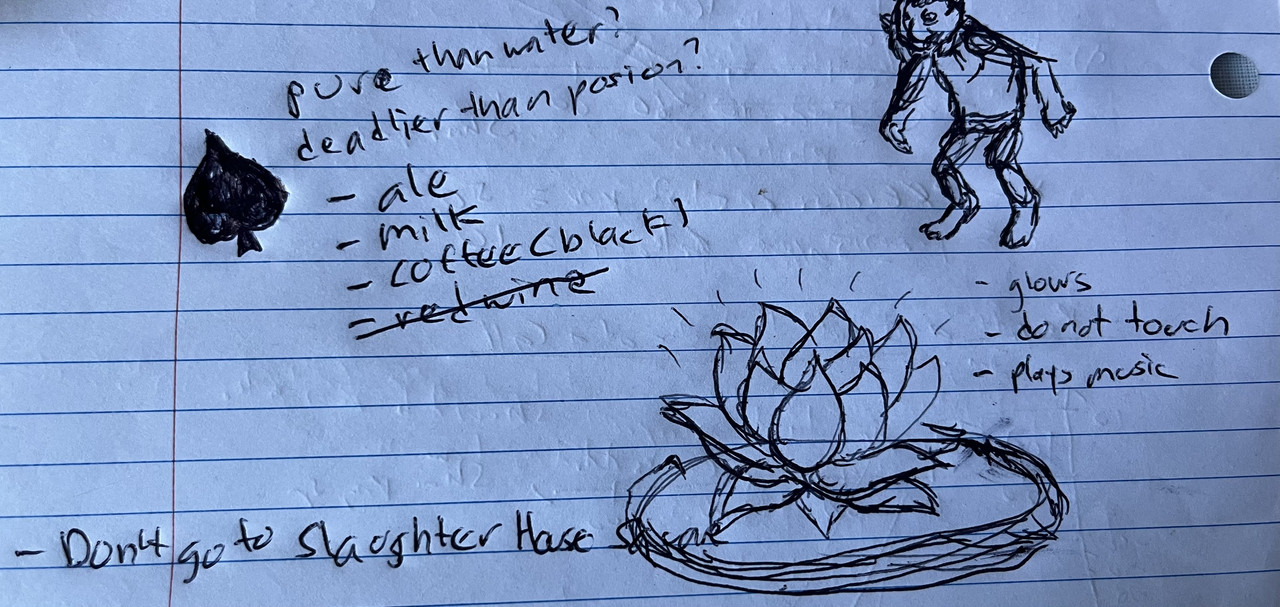 pure than water?
deadlier than posion?
- ale
- milk
- coffee (black)
- red wine
- glows
- do not touch
- plays music
- Don't go to Slaughter House Square